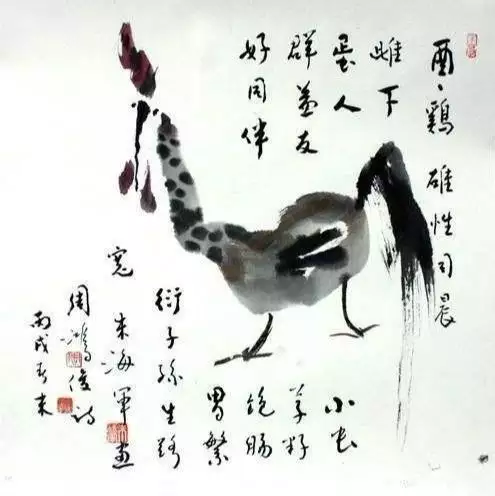 酉、鷄 雄性司晨
雌下
蛋人
群益友
好同伴
小虫
草籽
饱肠
胃繁
衍子孫生路
寬 朱海軍画
周鴻俊诗
丙戌春末